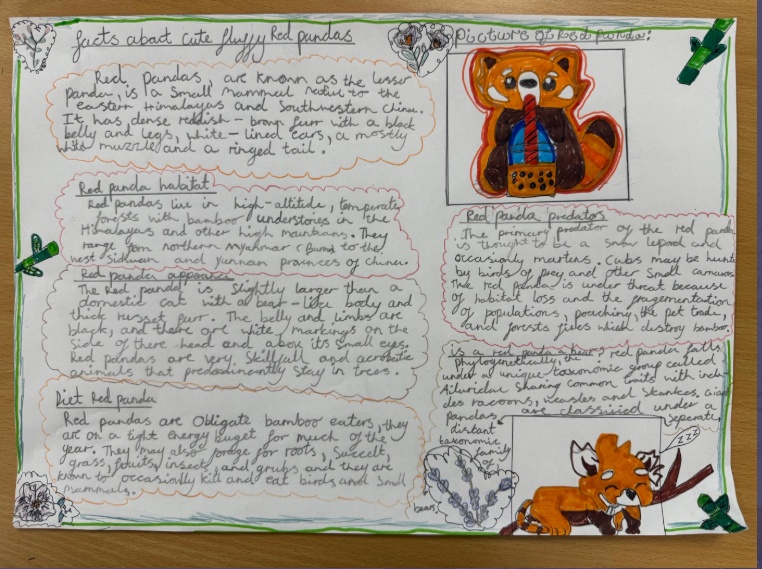 facts about cute fluffy Red pandas
Red Pandas, are known as the lesser
Panda, is a small mammal native to the
eastern Himalayas and Southwestern China.
It has dense reddish-brown furr with a black
belly and legs, white-lined ears, a mostly
white muzzle and a ringed tail.
Red panda habitat
Red pandas live in high-altitude, temperate
forests with bamboo understories in the
Himalayas and other high mountians. They
range from northern myanmar (Burma) to the
west Sichuan and yunnan provinces of China.
Red panda
The Red panda is slightly larger than a
domestic cat with a bear-like body and
thick russet furr. The belly and limbs are
black, and there are white markings on the
side of there head and above its small eyes.
Red pandas are very skillfull and acrobatic
animals that predominantly stay in trees.
Diet Red panda
Red pandas are obligate bamboo eaters, they
are on a tight energy buget for much of the
year. They may also forage for roots,
grass, fruits, insect, and grubs and they are
known to occasionly kill and eat birds and small
mammals.
Picture of Red panda:
Red panda predators
The primary predator of the red panda
is thought to be a snow lepoad and
occasionly martens. Cubs may be hunted
by birds of prey and other small
The red panda is under threat because
of habitat loss and the fragementation
of populations, poaching, the pet trade,
and forests fires which destroy bamboo.
is a red panda a bear? red panda falls
phylogenetically, the
under a unique taxonomic group called
Ailuridae sharing common traits with
racoons, weasles and skunkes. Giant
pandas are classified under a seperate
distant
taxonomic
family
of
bears.
zzz